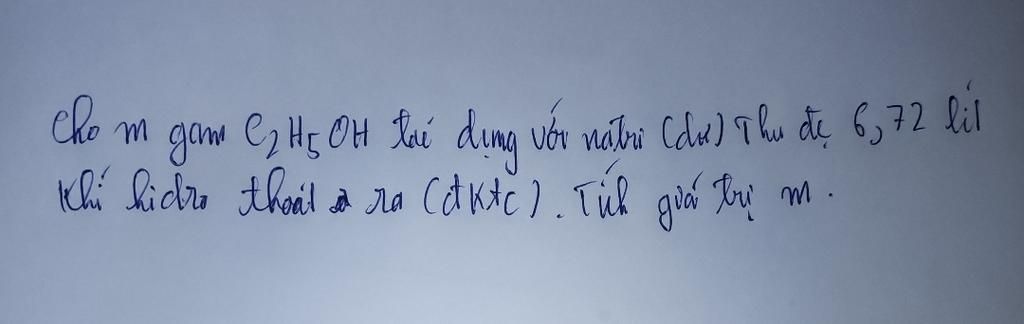 Cho m gam C₂H₅OH tác dụng với natri (dư) Thu đc 6,72 lít
Khí hidro thoát ra (đktc). Tính giá trị m.